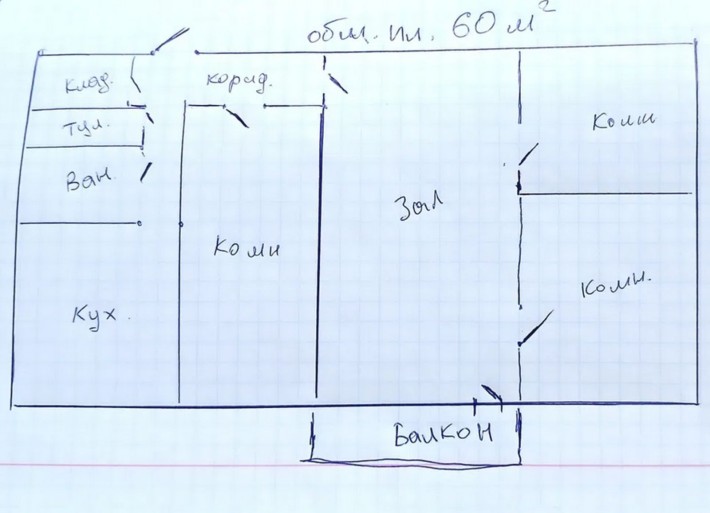 общ. пл. 60 м²
клад.
корид.
Тул.
Ван.
Комн
Зал
Комн
Кух.
Комн.
Балкон